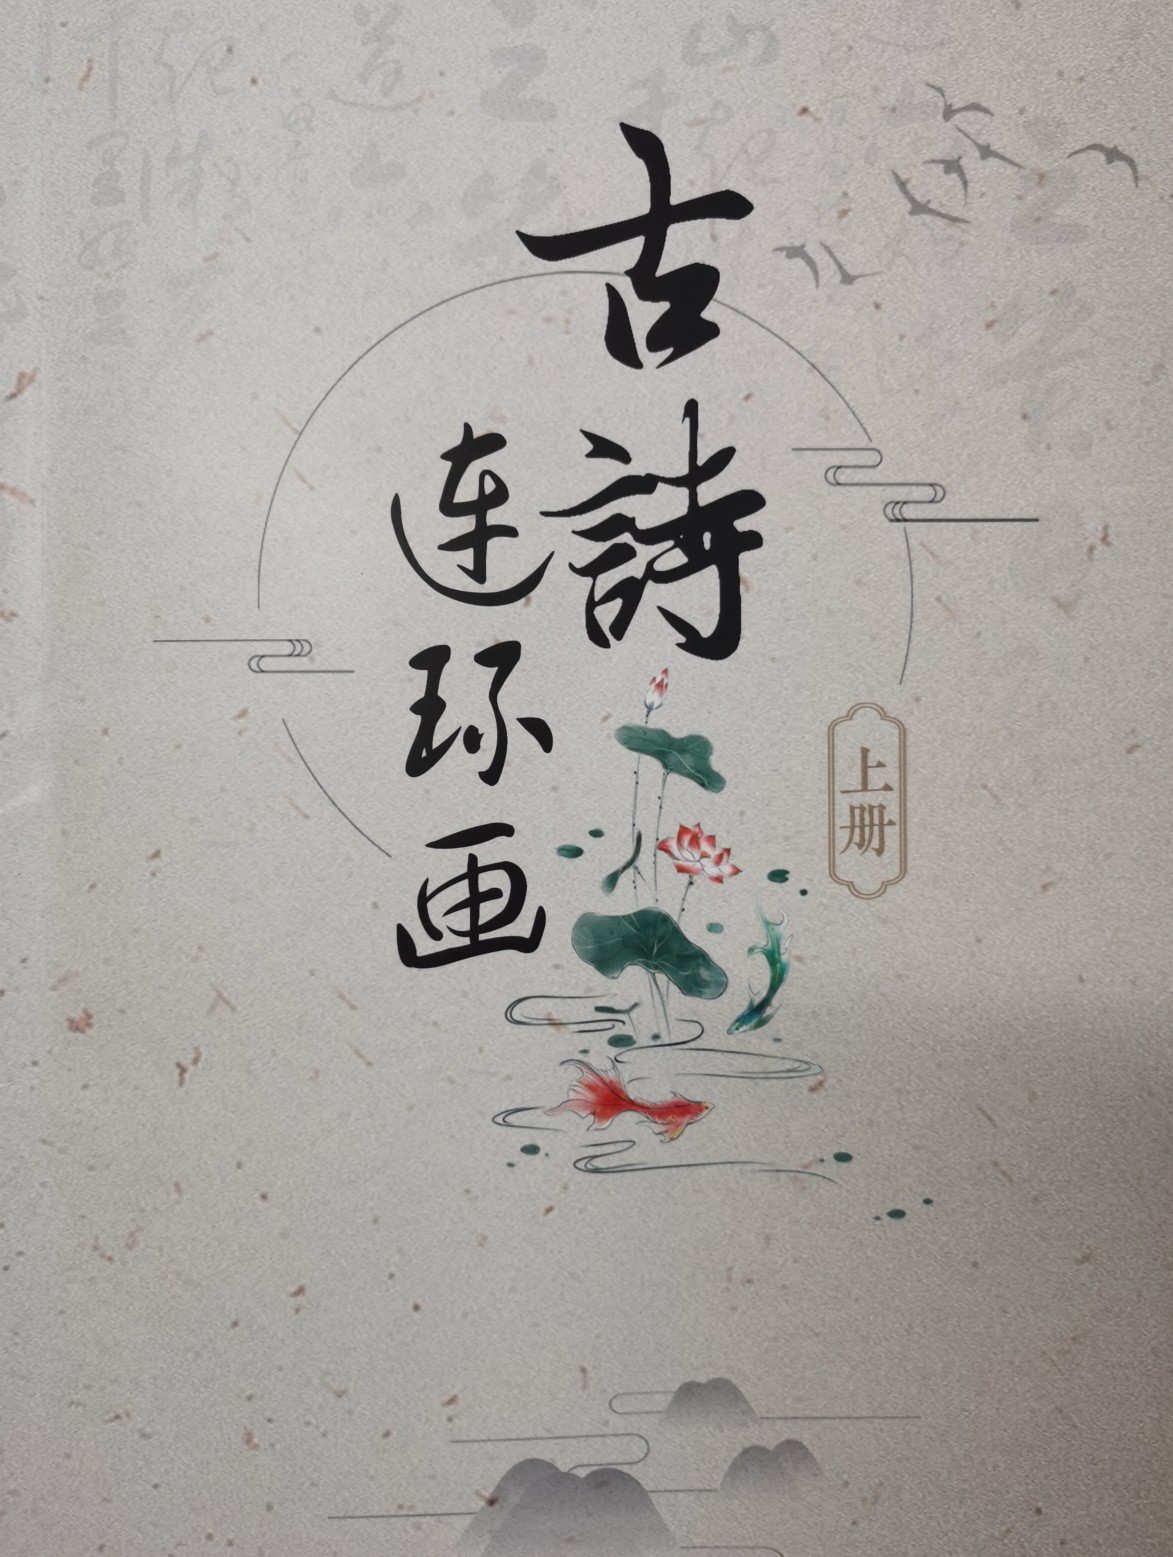 古詩
连环画
上册